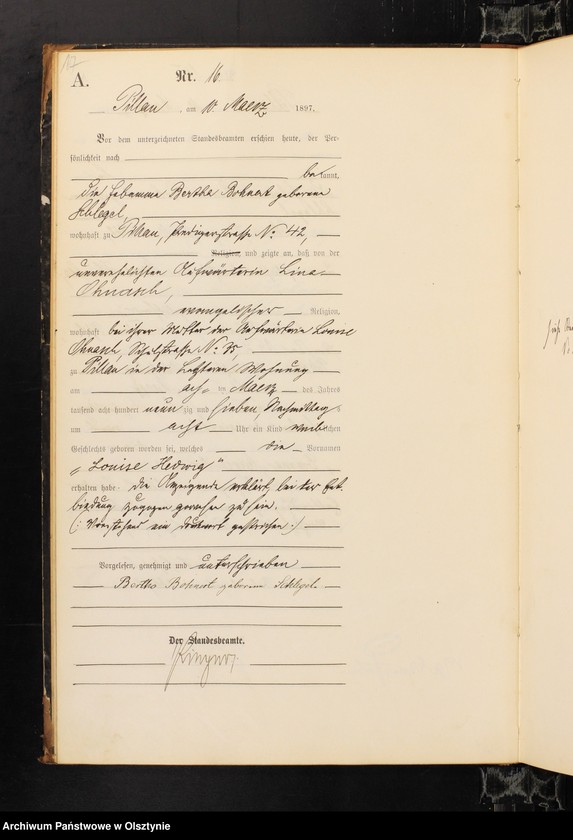 17
A.
Nr. 16
Pillau, am 10. Maerz 1897.
Vor dem unterzeichneten Standesbeamten erschien heute, der Per-
sönlichkeit nach
bekannt,
die Hebamme Bertha geborene
Schlegel,
wohnhaft zu Pillau, Predigerstraße No 42,
Religion, und zeigte an, daß von der
unverehelichten Aufwärterin Lina
evangelischer Religion,
wohnhaft bei ihrer Mutter der Aufwärterin Louise
Schulstraße No
zu Pillau in der letzteren Wohnung
am acht ten Maerz des Jahres
tausend acht hundert neun zig und sieben, Nachmittags
um acht Uhr ein Kind weiblichen
Geschlechts geboren worden sei, welches die Vornamen
„Louise Hedwig"
erhalten habe. die Anzeigende erklärt, bei der Ent-
bindung zugegen gewesen zu sein.
(: Vorstehend ein Druckwort gestrichen :)
Vorgelesen, genehmigt und unterschrieben
Bertha geborene Schlegel
Der Standesbeamte.
Archiwum Państwowe w Olsztynie